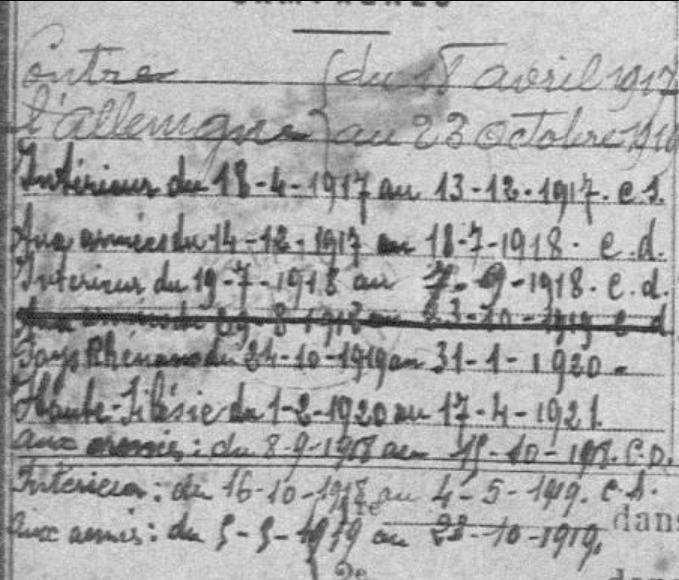 CAMPAGNES
Contre { du 18 avril 1917
l'Allemagne } au 23 Octobre 1919
Intérieur du 18-4-1917 au 13-12-1917. c.s.
Aux armées du 14-12-1917 au 18-7-1918. c.d.
Intérieur du 19-7-1918 au 7-9-1918. c.d.
Aux armées du 8-1918 au 23-10-1919 c d
Pays Rhénans du 24-10-1919 au 31-1-1920 -
Haute-Silésie du 1-2-1920 au 17-4-1921.
aux armées : du 8-9-1918 au 15-10-1918. C.D.
Intérieur : du 16-10-1918 au 4-5-1919. C.S.
aux armées : du 5-5-1919 au 23-10-1919.
dans